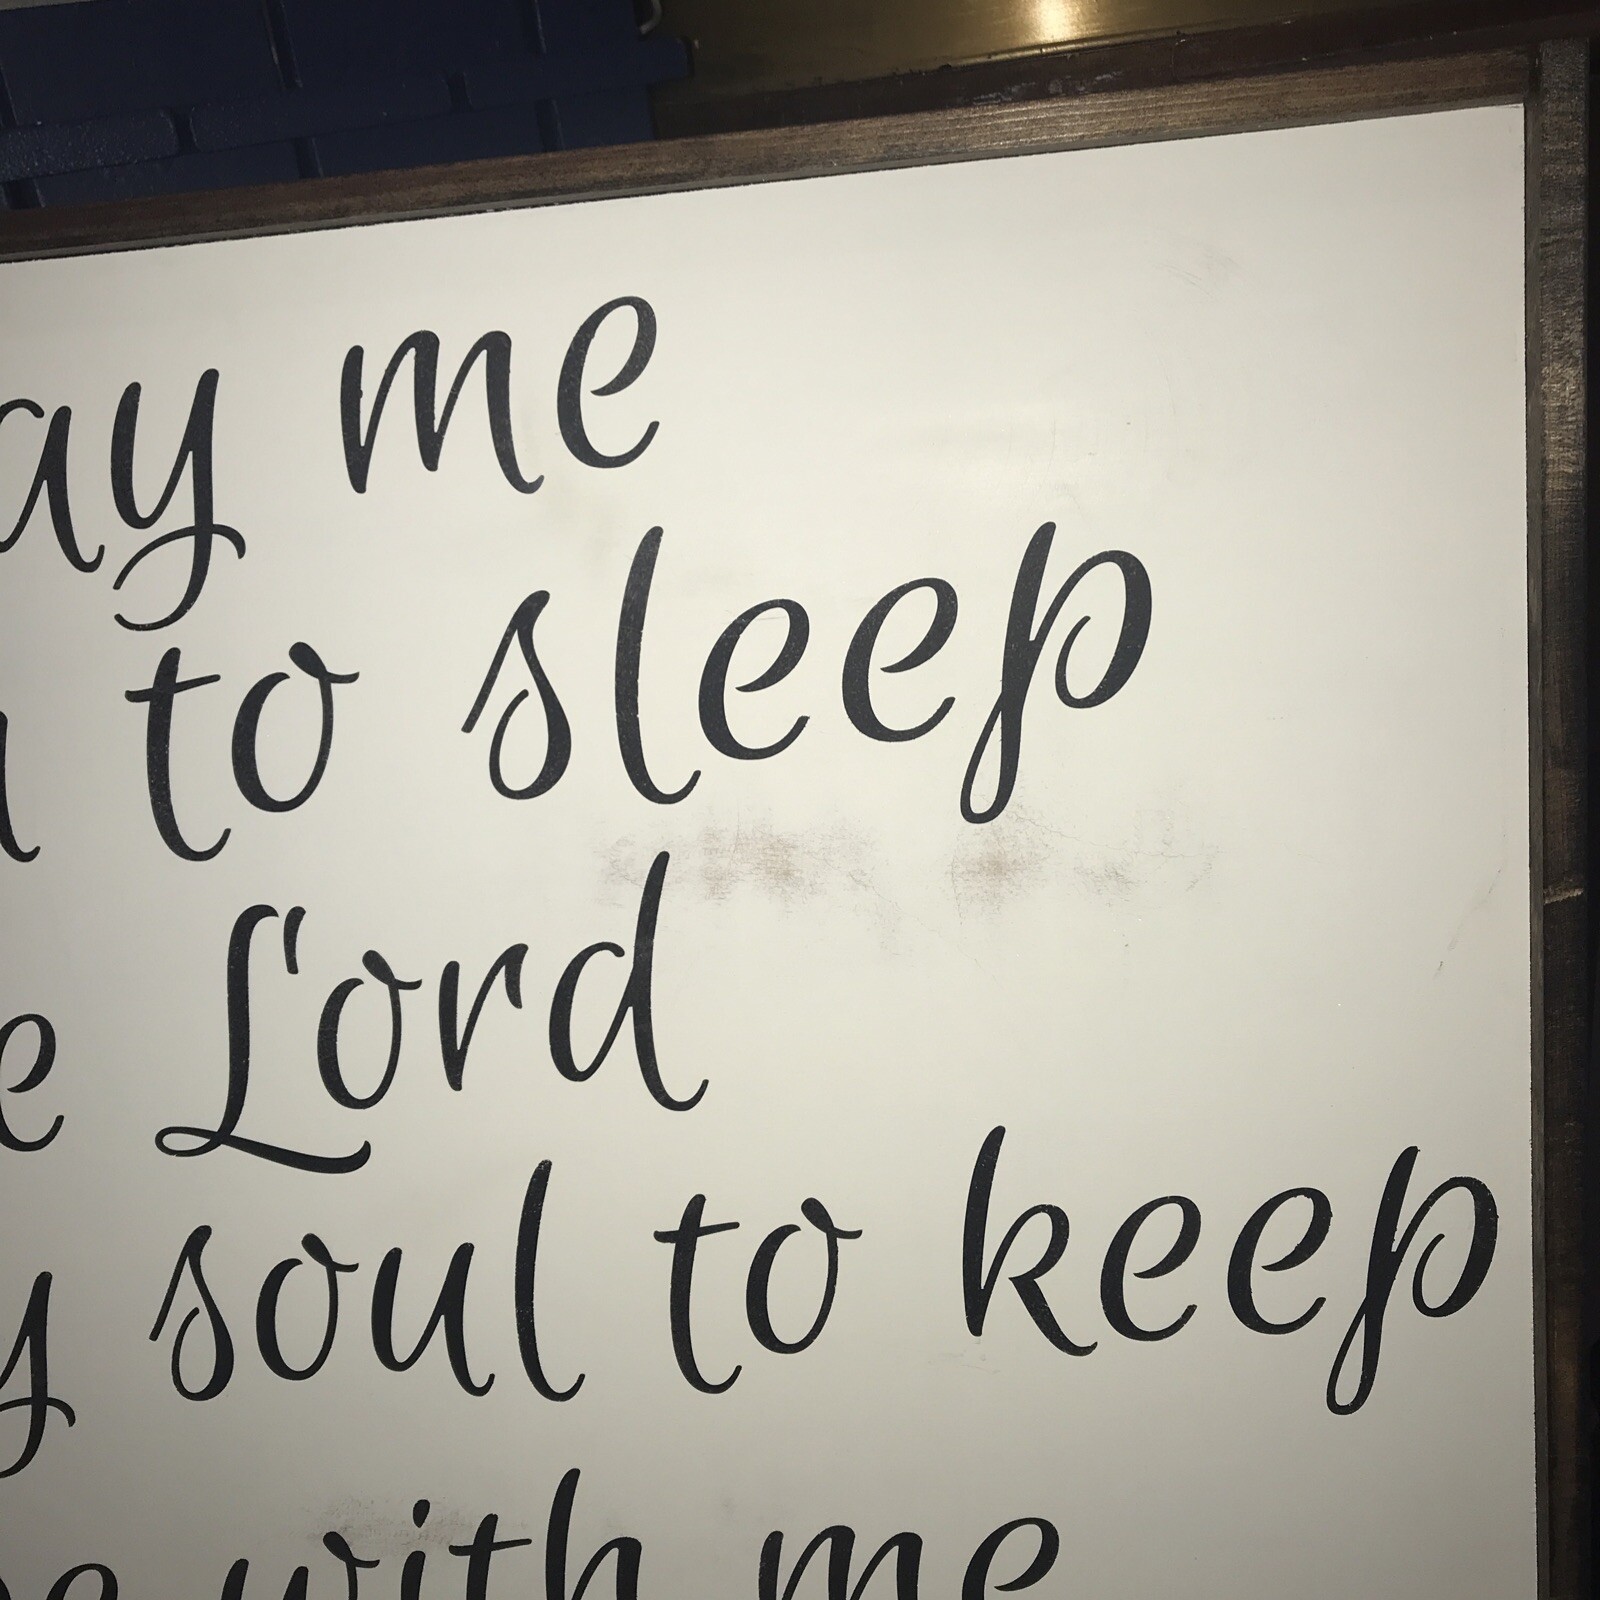 ay me
to sleep
e Lord
y soul to keep
e with me